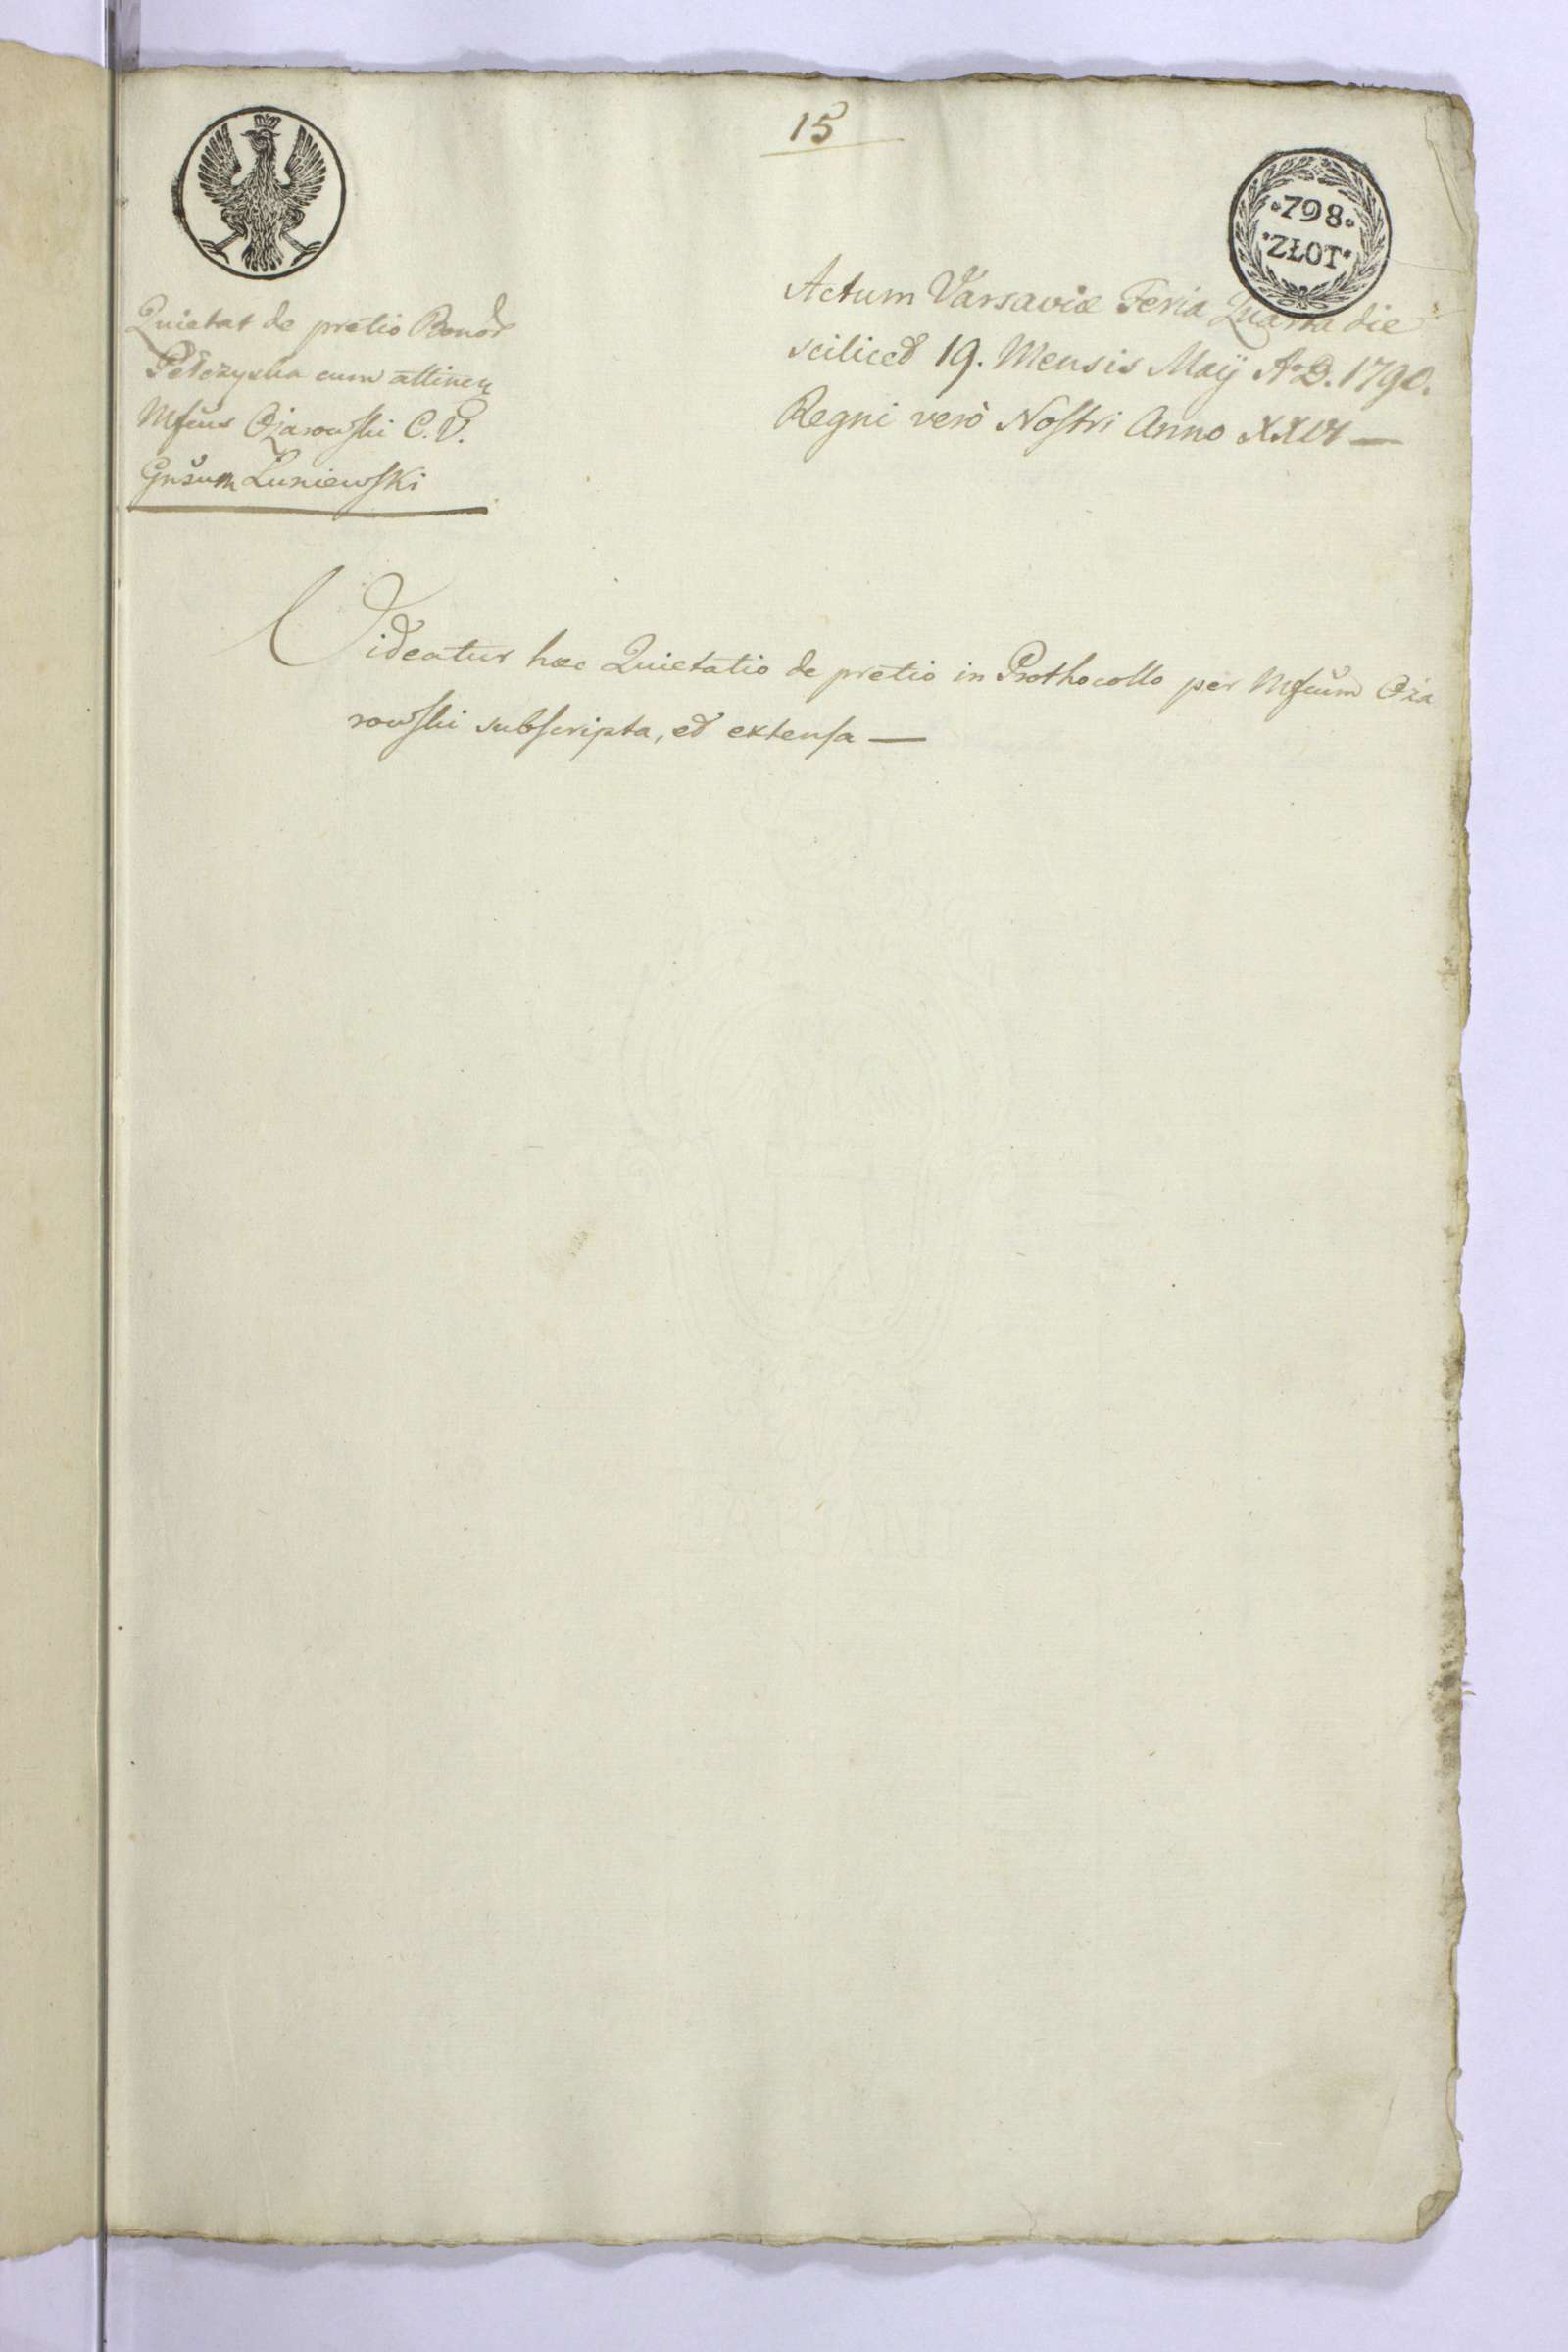 15
·798·
*ZŁOT*
Quietat de pretio Bonor
Pełczyska cum attinen
Mfcus Ożarowski C. V.
Gnsum Łuniewski
Actum Varsaviæ Feria Quarta die
scilicet 19. Mensis Maÿ A°D. 1790.
Regni verò Nostri Anno XXVI —
Videatur hæc Quietatio de pretio in Prothocollo per Mfcum Oża
rowski subscripta, et extensa —